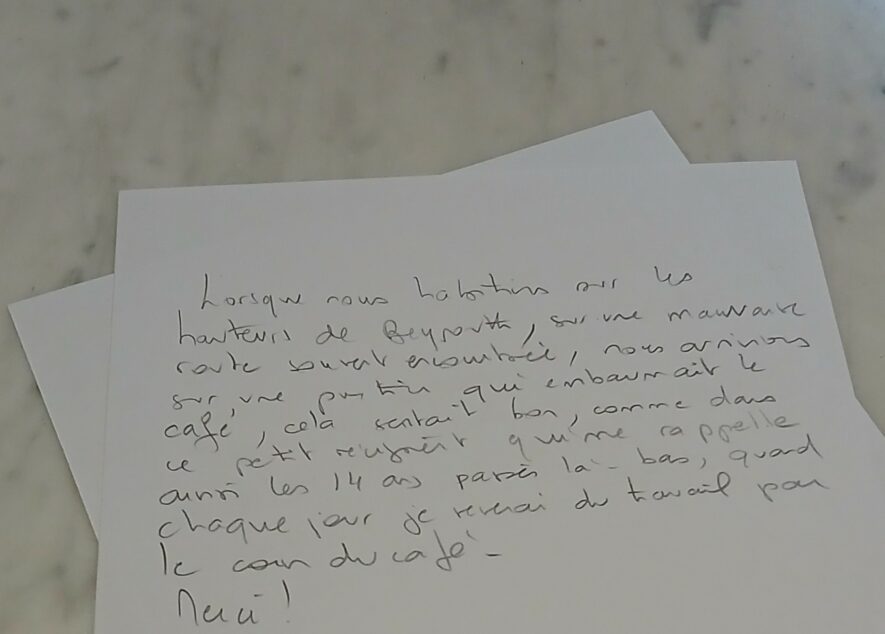 Lorsque nous habitions sur les
hauteurs de Beyrouth, sur une mauvaise
route souvent encombrée, nous arrivions
sur une portion qui embaumait le
café, cela sentait bon, comme dans
ce petit qui me rappelle
aussi les 14 ans passés là-bas, quand
chaque jour je revenai du travail par
le coin du café -
Merci !